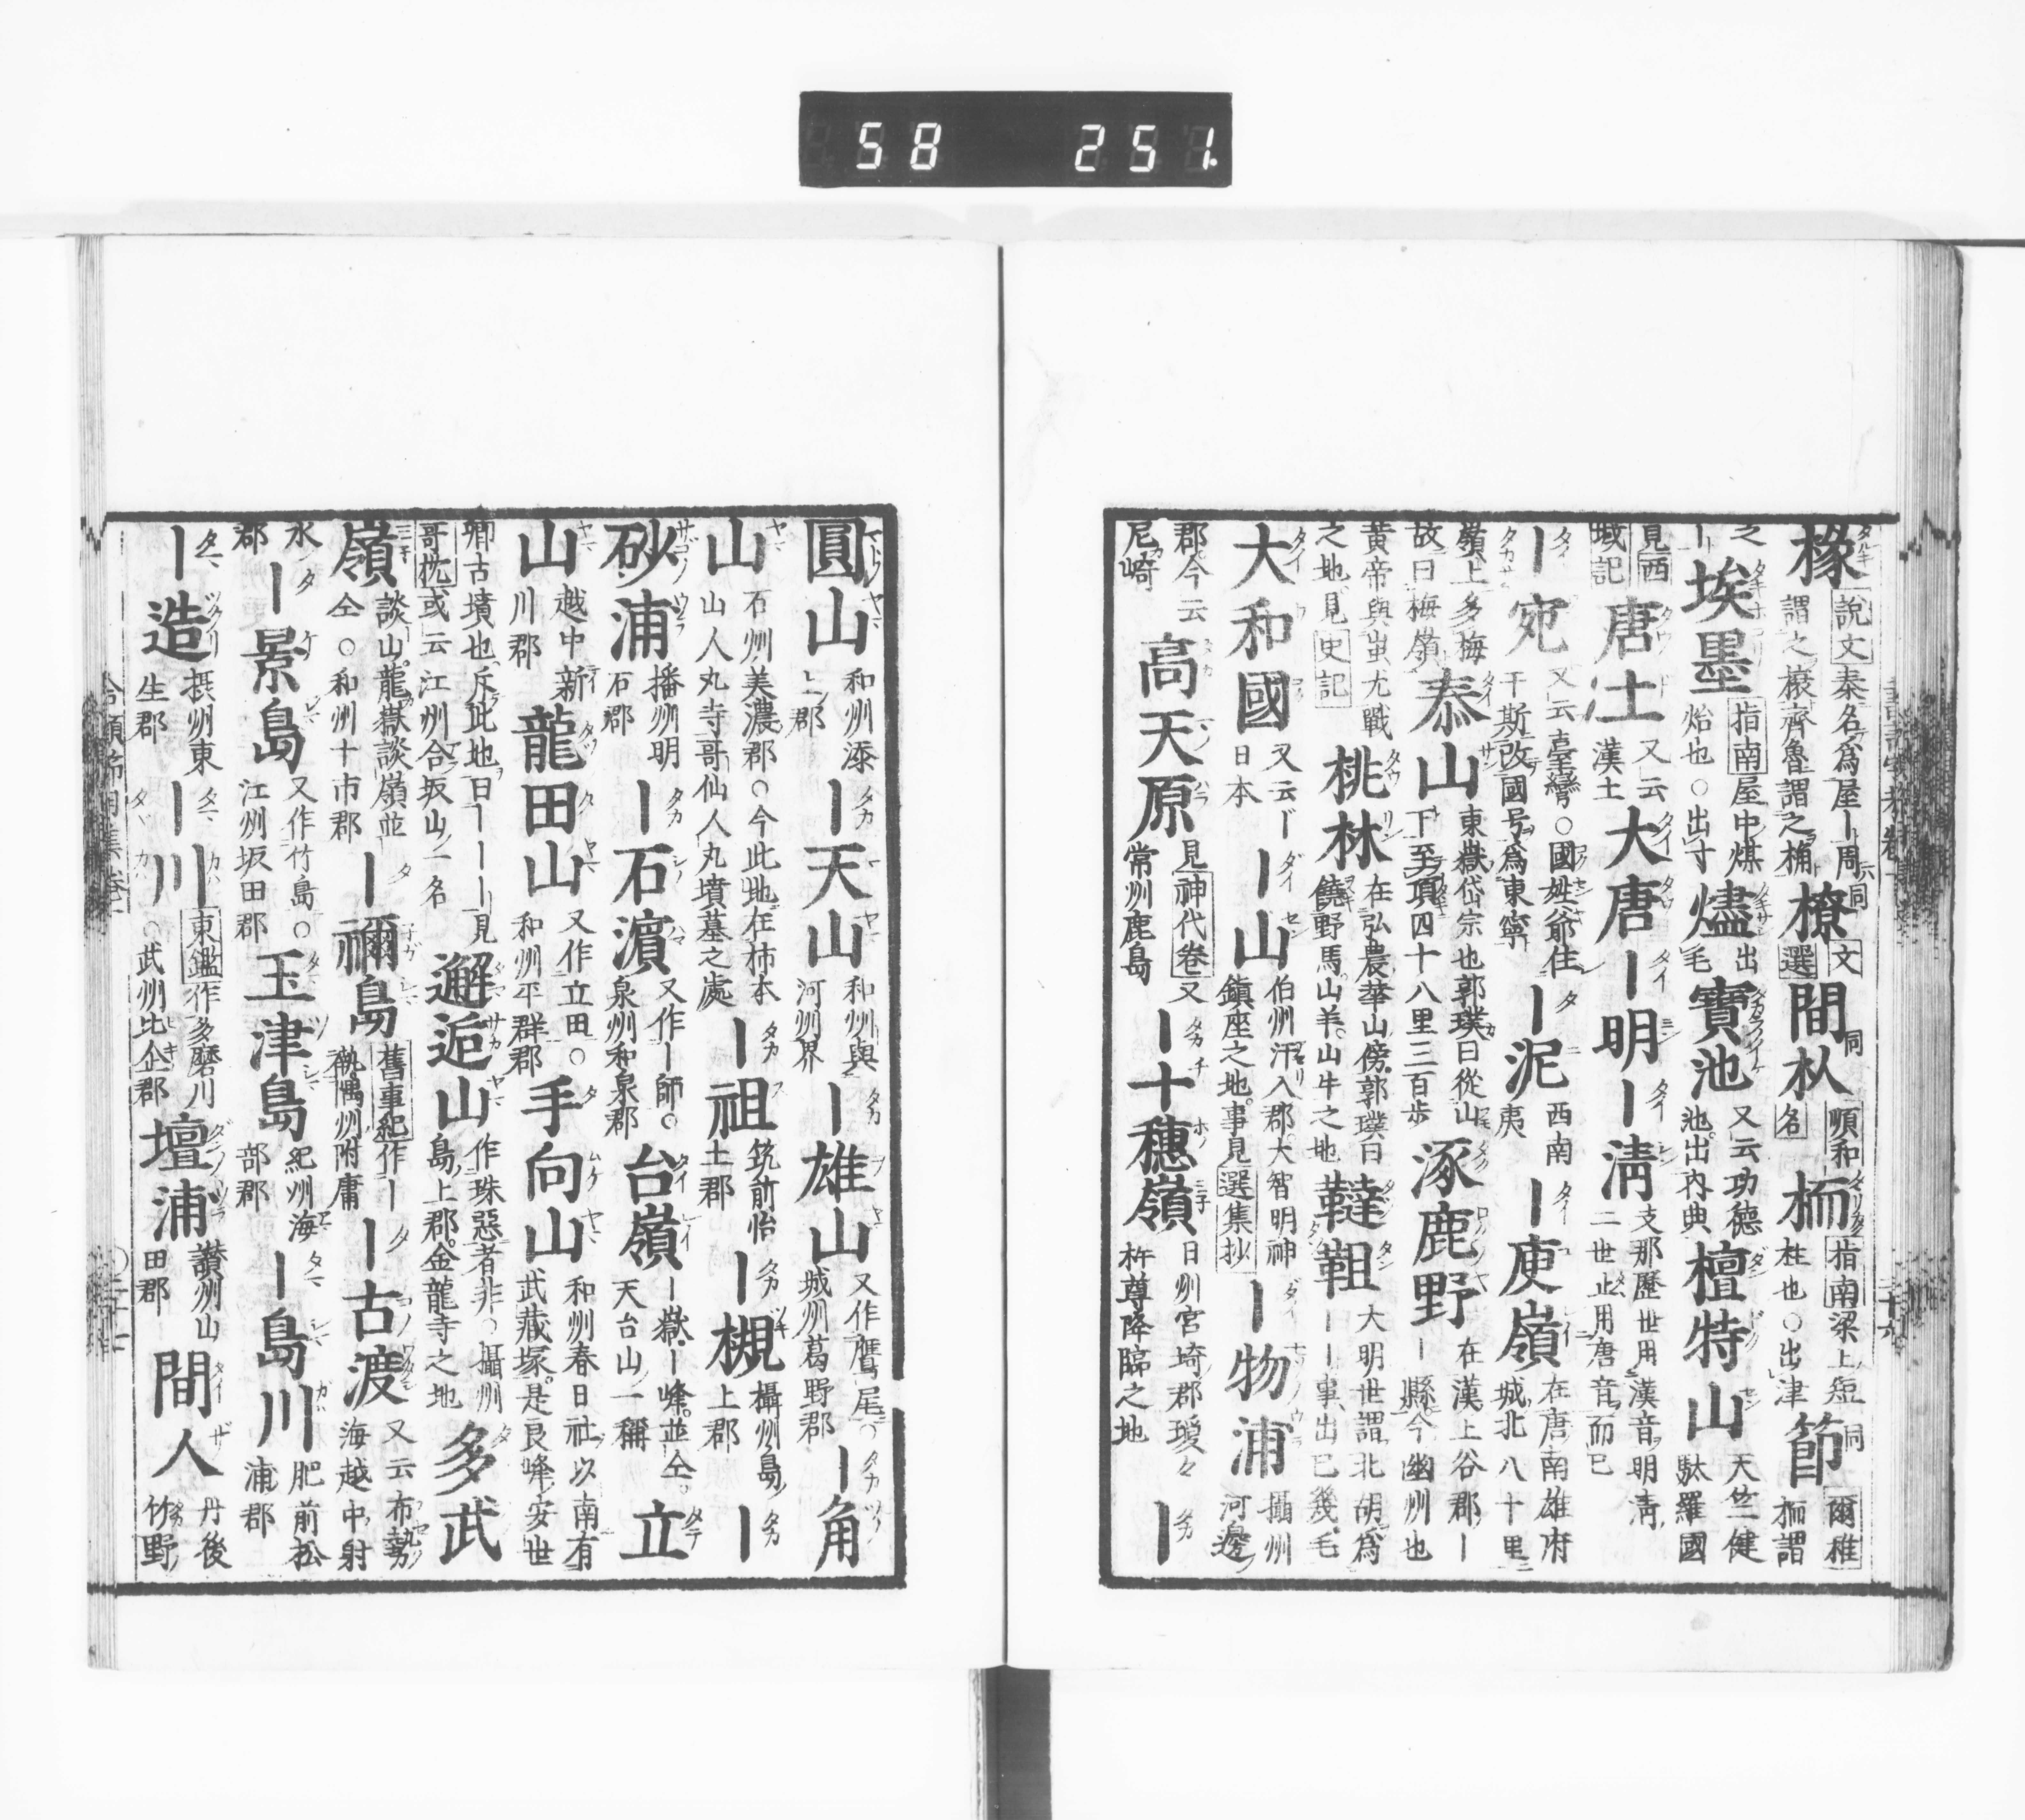 58 251
椽 説文秦名為屋｜周謂之榱齊魯謂之桷 橑 同 文選 間杁 同 順和名 栭 指南梁上短柱也○出津 節 同 爾雅栭謂
之｜ 埃墨 指南屋中煤炲也○出寸 燼 出毛 寶池 又云功徳池出内典 檀特山 天竺健駄羅國
見西域記 唐土 又云漢土 大唐 ｜明 ｜淸 支那歴世用漢音明淸二世止用唐音而已
｜宛 又云臺灣○國姓爺住干斯改國号為東寧 ｜泥 西南夷 ｜庾嶺 在唐南雄府城北八十里
嶺上多梅故曰梅嶺 泰山 東嶽岱宗也郭璞曰從山下至頂四十八里三百歩 涿鹿野 在漢上谷郡｜｜縣今幽州也
黄帝與蚩尤戰之地見史記 桃林 在弘農華山傍郭璞曰饒野馬山羊山牛之地 韃靼 大明世謂北胡為｜｜事出巳幾毛
大和國 又云｜日本 ｜山 伯州汗入郡大智明神鎭座之地事見選集抄 ｜物浦 攝州河邊
郡今云尼崎 高天原 見神代卷又常州鹿島 ｜十穗嶺 日州宮埼郡瓊々杵尊降臨之地 ｜
圓山 和州添上郡 ｜天山 和州與河州界 ｜雄山 又作鷹尾○城州葛野郡 ｜角
山 石州美濃郡○今此地在柿本山人丸寺哥仙人丸墳墓之處 ｜祖 筑前怡土郡 ｜槻 攝州島上郡 ｜
砂浦 播州明石郡 ｜石濵 又作｜師○泉州和泉郡 台嶺 ｜嶽｜峰並仝天台山一稱 立
山 越中新川郡 龍田山 又作立田○和州平群郡 手向山 和州春日社以南有武藏塚是良峰安世
卿古墳也斥此地曰｜｜｜見哥枕或云江州合坂山一名 邂逅山 作珠惡者非○攝州島上郡金龍寺之地 多武
嶺 談山龍嶽談嶺並仝○和州十市郡 ｜禰島 舊事紀作｜隅州附庸 ｜古渡 又云布勢海越中射
水郡 ｜景島 又作竹島○江州坂田郡 玉津島 紀州海部郡 ｜島川 肥前松浦郡
｜造 摂州東生郡 ｜川 東鑑作多磨川○武州比企郡 壇浦 讃州山田郡 間人 丹後竹野